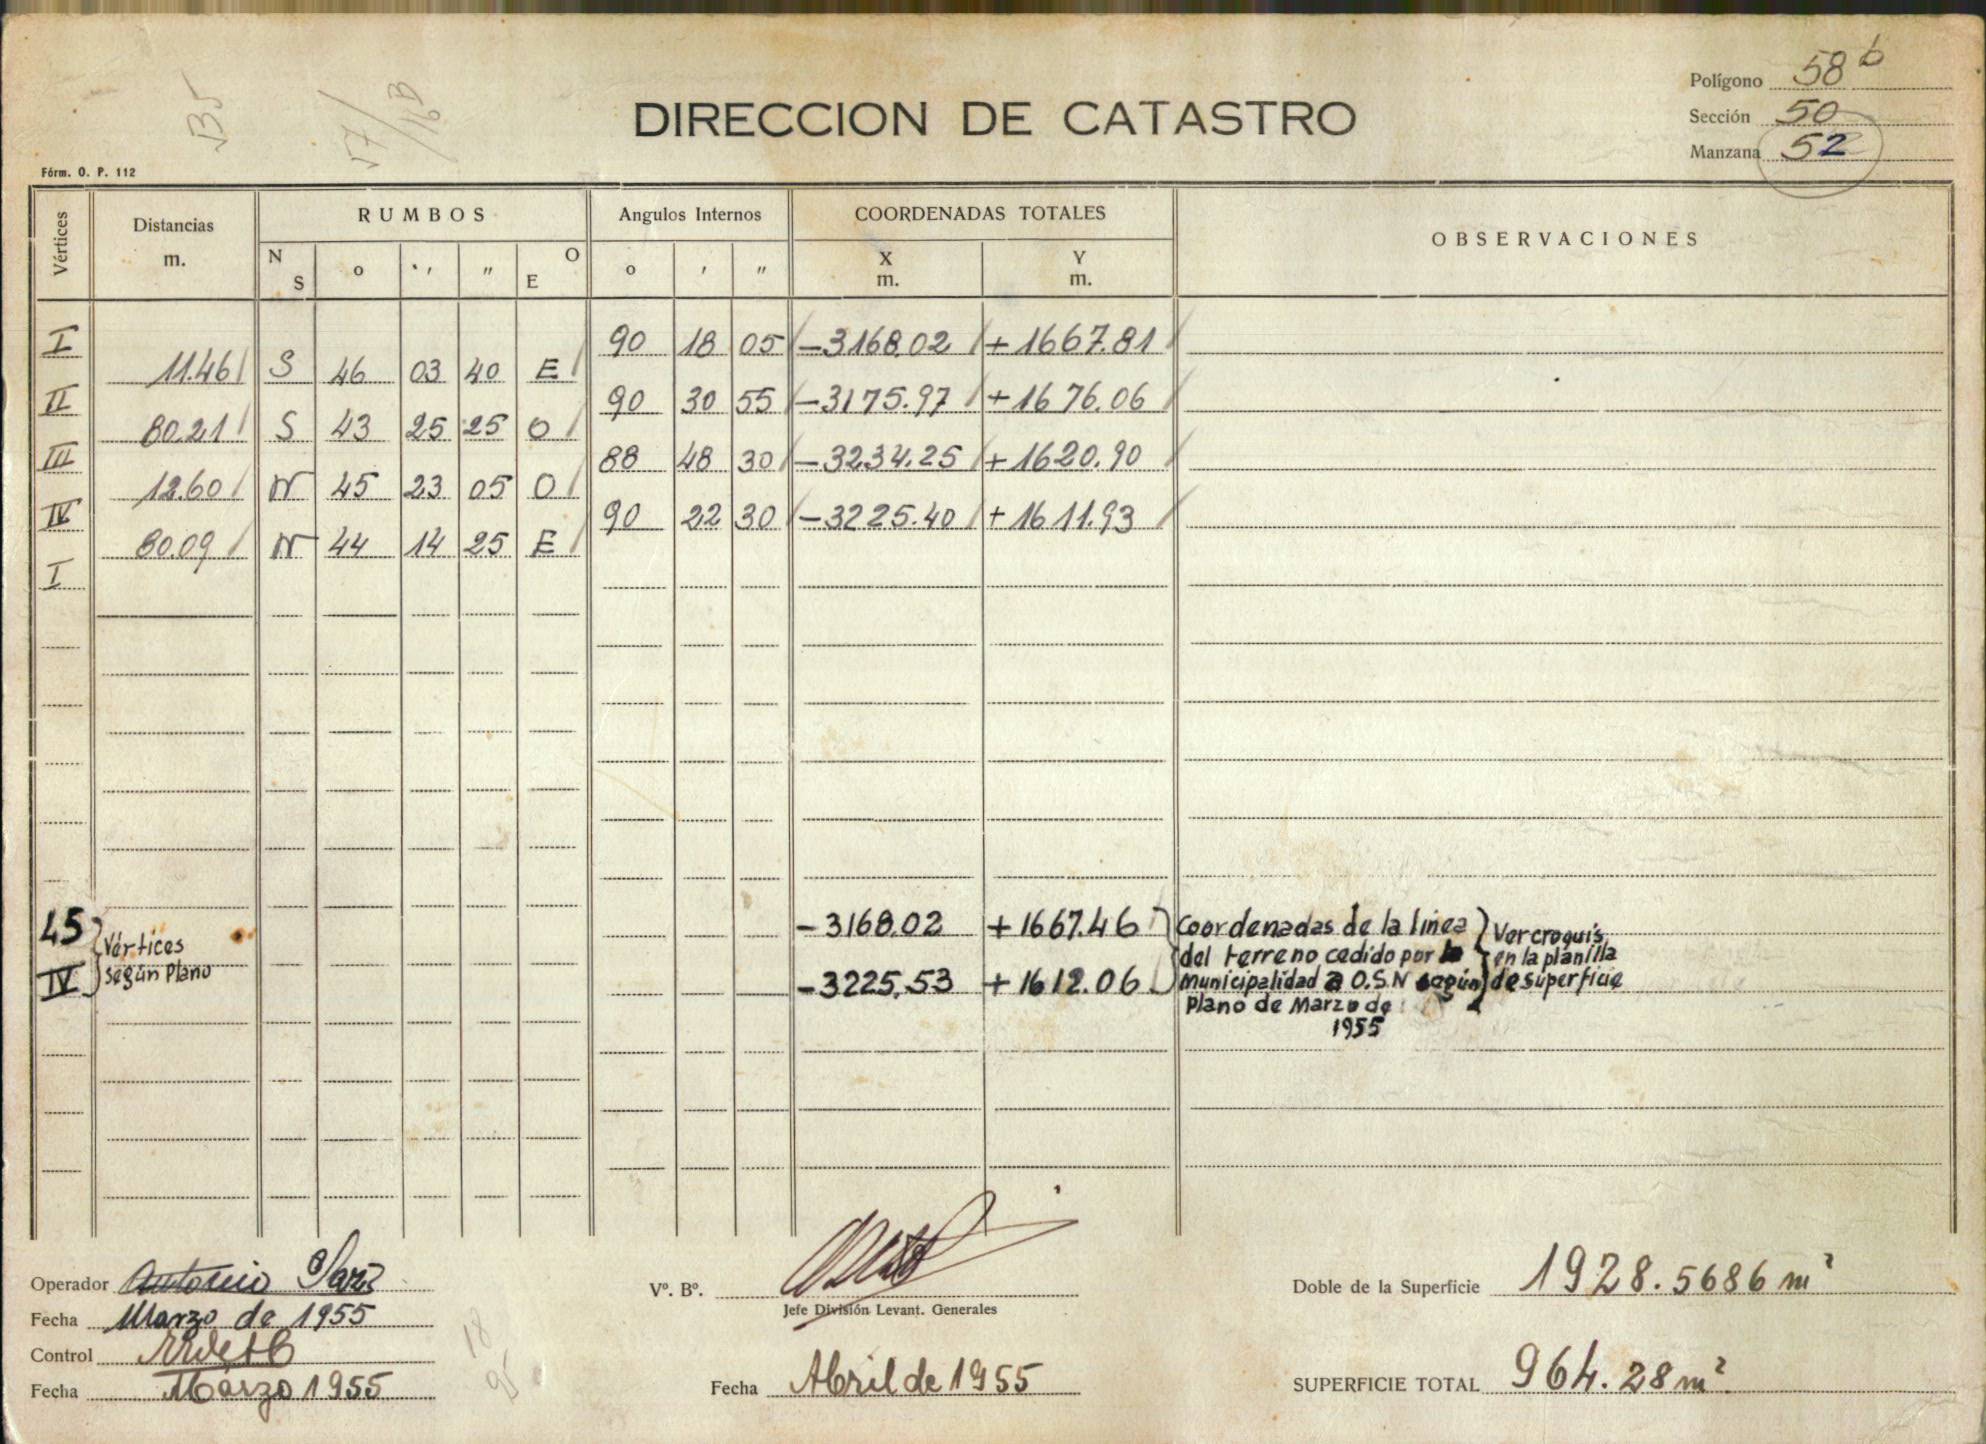 B5
17/16B
DIRECCION DE CATASTRO
Polígono 58 b
Sección 50
Manzana 52
Fórm. O. P. 112
Vértices
Distancias m.
RUMBOS
Angulos Internos
COORDENADAS TOTALES
OBSERVACIONES
N S o ' " O E
o ' "
X m.
Y m.
I 90 18 05 -3168.02 +1667.81
11.46 S 46 03 40 E
II 90 30 55 -3175.97 +1676.06
80.21 S 43 25 25 O
III 88 48 30 -3234.25 +1620.90
12.60 N 45 23 05 O
IV 90 22 30 -3225.40 +1611.93
80.09 N 44 14 25 E
I
45 -3168.02 +1667.46
IV -3225.53 +1612.06
Vértices
según plano
Coordenadas de la linea
del terreno cedido por la
municipalidad a O.S.N según
plano de Marzo de
1955
Ver croquis
en la planilla
de superficie
Operador Antonio
Fecha Marzo de 1955
Control
Fecha Marzo 1955
18
95
Vº. Bº.
Jefe División Levant. Generales
Fecha Abril de 1955
Doble de la Superficie 1928.5686 m²
SUPERFICIE TOTAL 964.28 m².